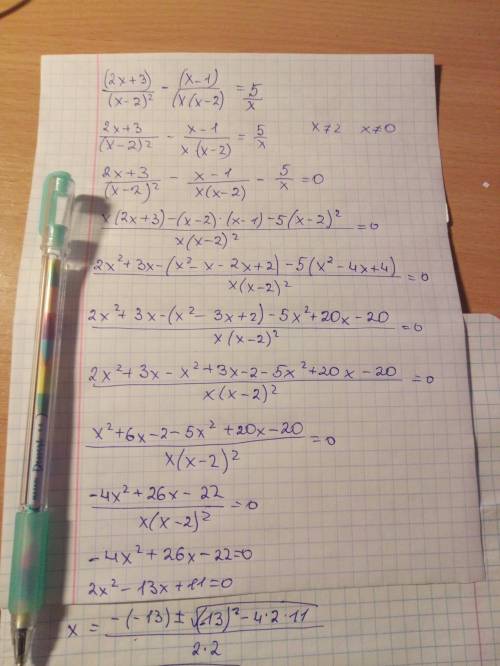 (2x+3)/(x-2)² - (x-1)/(x(x-2)) = 5/x
2x+3/(x-2)² - x-1/x(x-2) = 5/x x≠2 x≠0
2x+3/(x-2)² - x-1/x(x-2) - 5/x = 0
x(2x+3)-(x-2)·(x-1)-5(x-2)²/x(x-2)² = 0
2x²+3x-(x²-x-2x+2)-5(x²-4x+4)/x(x-2)² = 0
2x²+3x-(x²-3x+2)-5x²+20x-20/x(x-2)² = 0
2x²+3x-x²+3x-2-5x²+20x-20/x(x-2)² = 0
x²+6x-2-5x²+20x-20/x(x-2)² = 0
-4x²+26x-22/x(x-2)² = 0
-4x²+26x-22=0
2x²-13x+11=0
x = -(-13)±√(-13)²-4·2·11/2·2